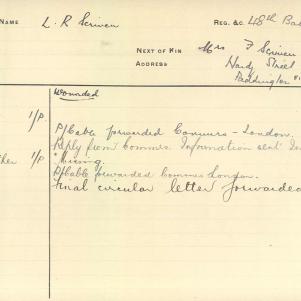 NAME L. R Scriven REG. &c 48th Ba
NEXT OF KIN Mrs F Scriven
ADDRESS Hardy Street
Paddington
Wounded
1/P
P/Cable forwarded Commrs - London.
Reply from Commrs. Information sent
her 1/P Missing.
P/Cable forwarded Commrs London.
Final circular letter forwarded